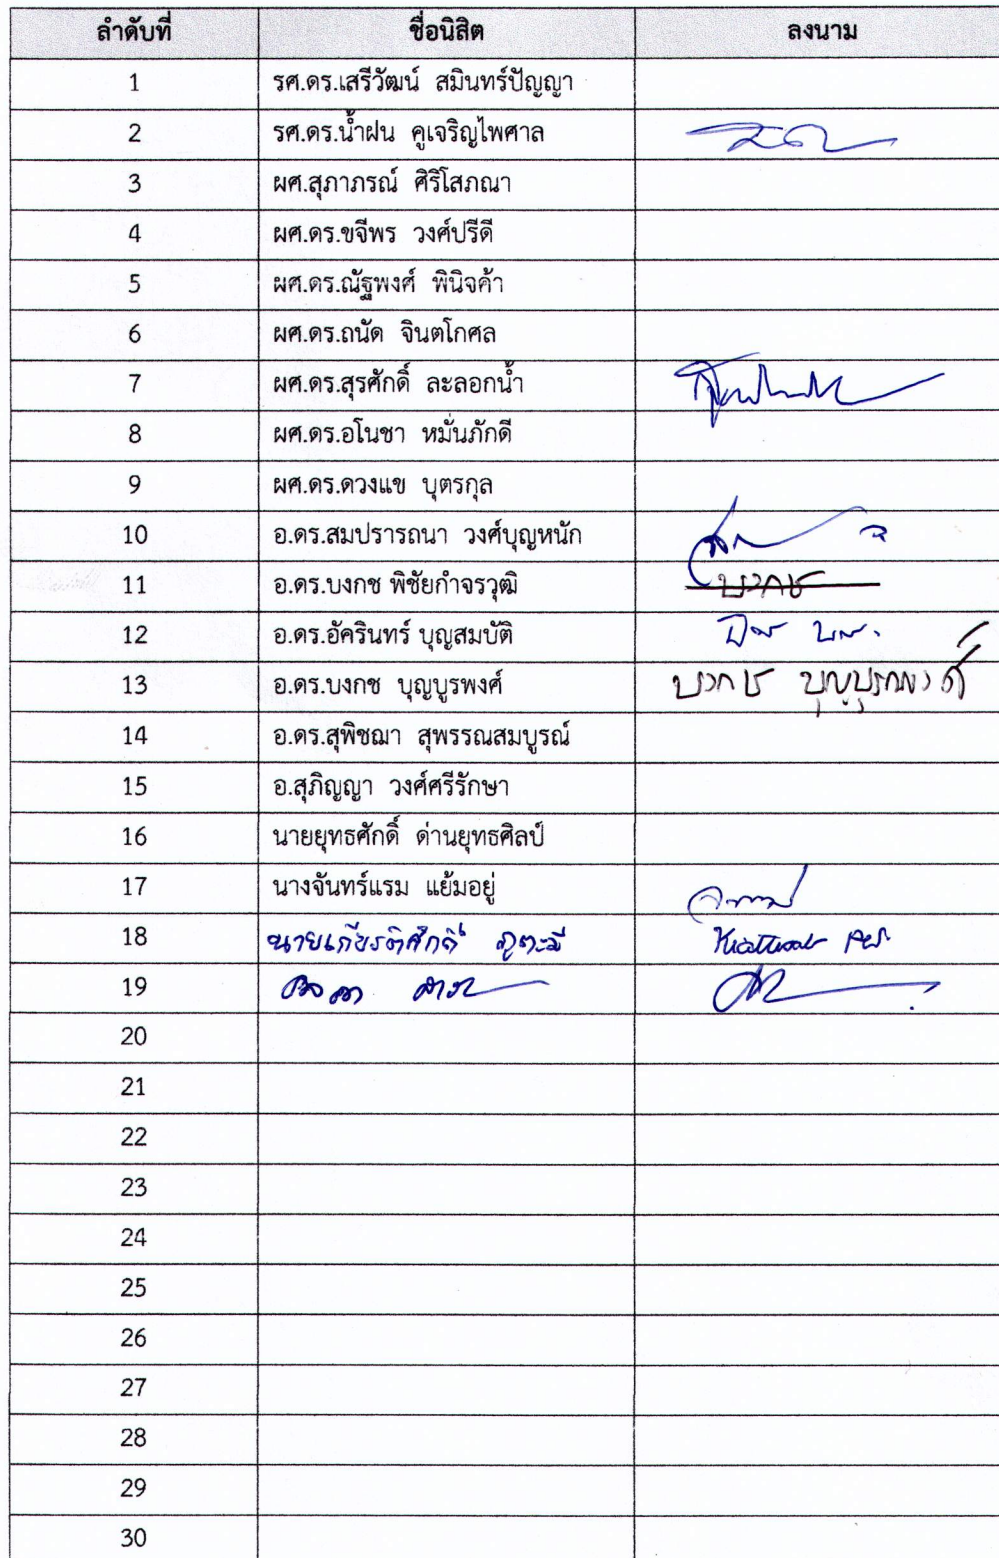 ลำดับที่ ชื่อนิสิต ลงนาม
1 รศ.ดร.เสรีวัฒน์ สมินทร์ปัญญา
2 รศ.ดร.น้ำฝน คูเจริญไพศาล
3 ผศ.สุภาภรณ์ ศิริโสภณา
4 ผศ.ดร.ขจีพร วงศ์ปรีดี
5 ผศ.ดร.ณัฐพงศ์ พินิจค้า
6 ผศ.ดร.ถนัด จินตโกศล
7 ผศ.ดร.สุรศักดิ์ ละลอกน้ำ
8 ผศ.ดร.อโนชา หมั่นภักดี
9 ผศ.ดร.ดวงแข บุตรกูล
10 อ.ดร.สมปรารถนา วงศ์บุญหนัก
11 อ.ดร.บงกช พิชัยกำจรวุฒิ บงกช
12 อ.ดร.อัครินทร์ บุญสมบัติ
13 อ.ดร.บงกช บุญบูรพงศ์ บงกช บุญบูรณพงศ์
14 อ.ดร.สุพิชฌา สุพรรณสมบูรณ์
15 อ.สุภิญญา วงศ์ศรีรักษา
16 นายยุทธศักดิ์ ด่านยุทธศิลป์
17 นางจันทร์แรม แย้มอยู่
18 นายเกียรติศักดิ์
19
20
21
22
23
24
25
26
27
28
29
30